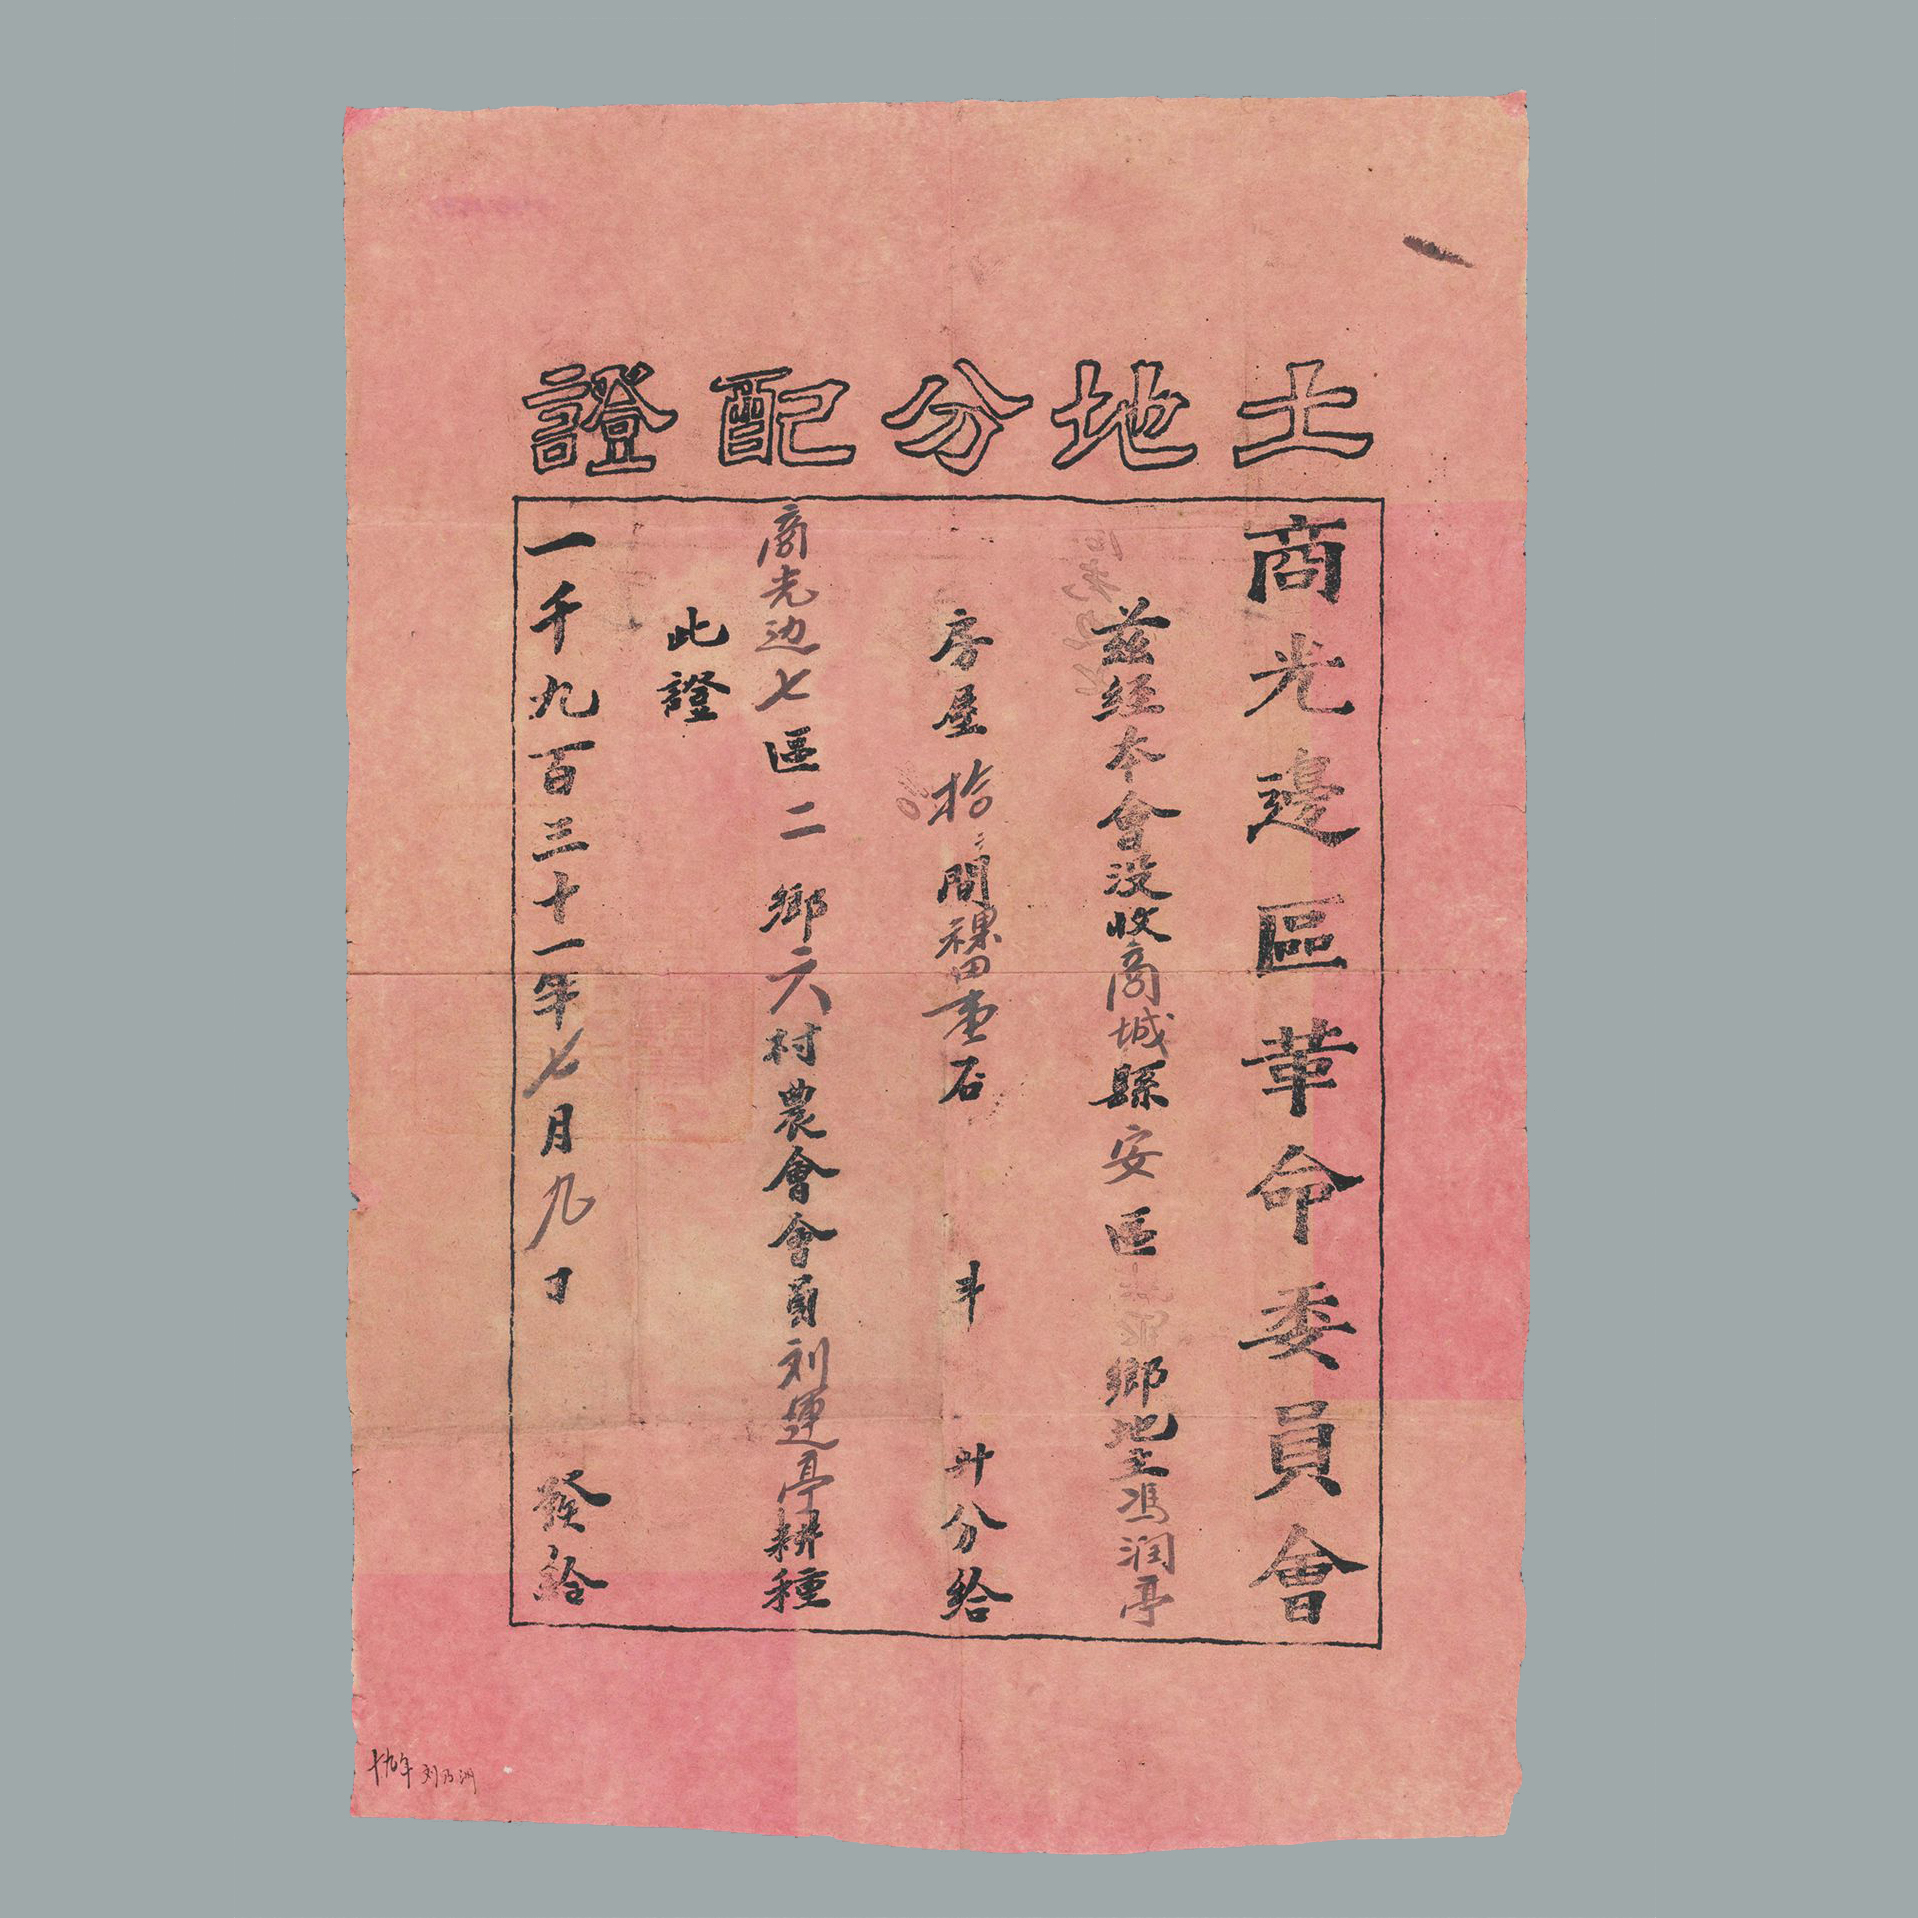 土地分配證
商光邊區革命委員會
茲經本會没收商城縣安區 鄉地主馮润亭
房屋拾間稞田壹石 斗 升分給
商光边七區二鄉六村農會會員刘運亭耕種
此證
一千九百三十一年七月九日 發給
十九年 刘乃洲